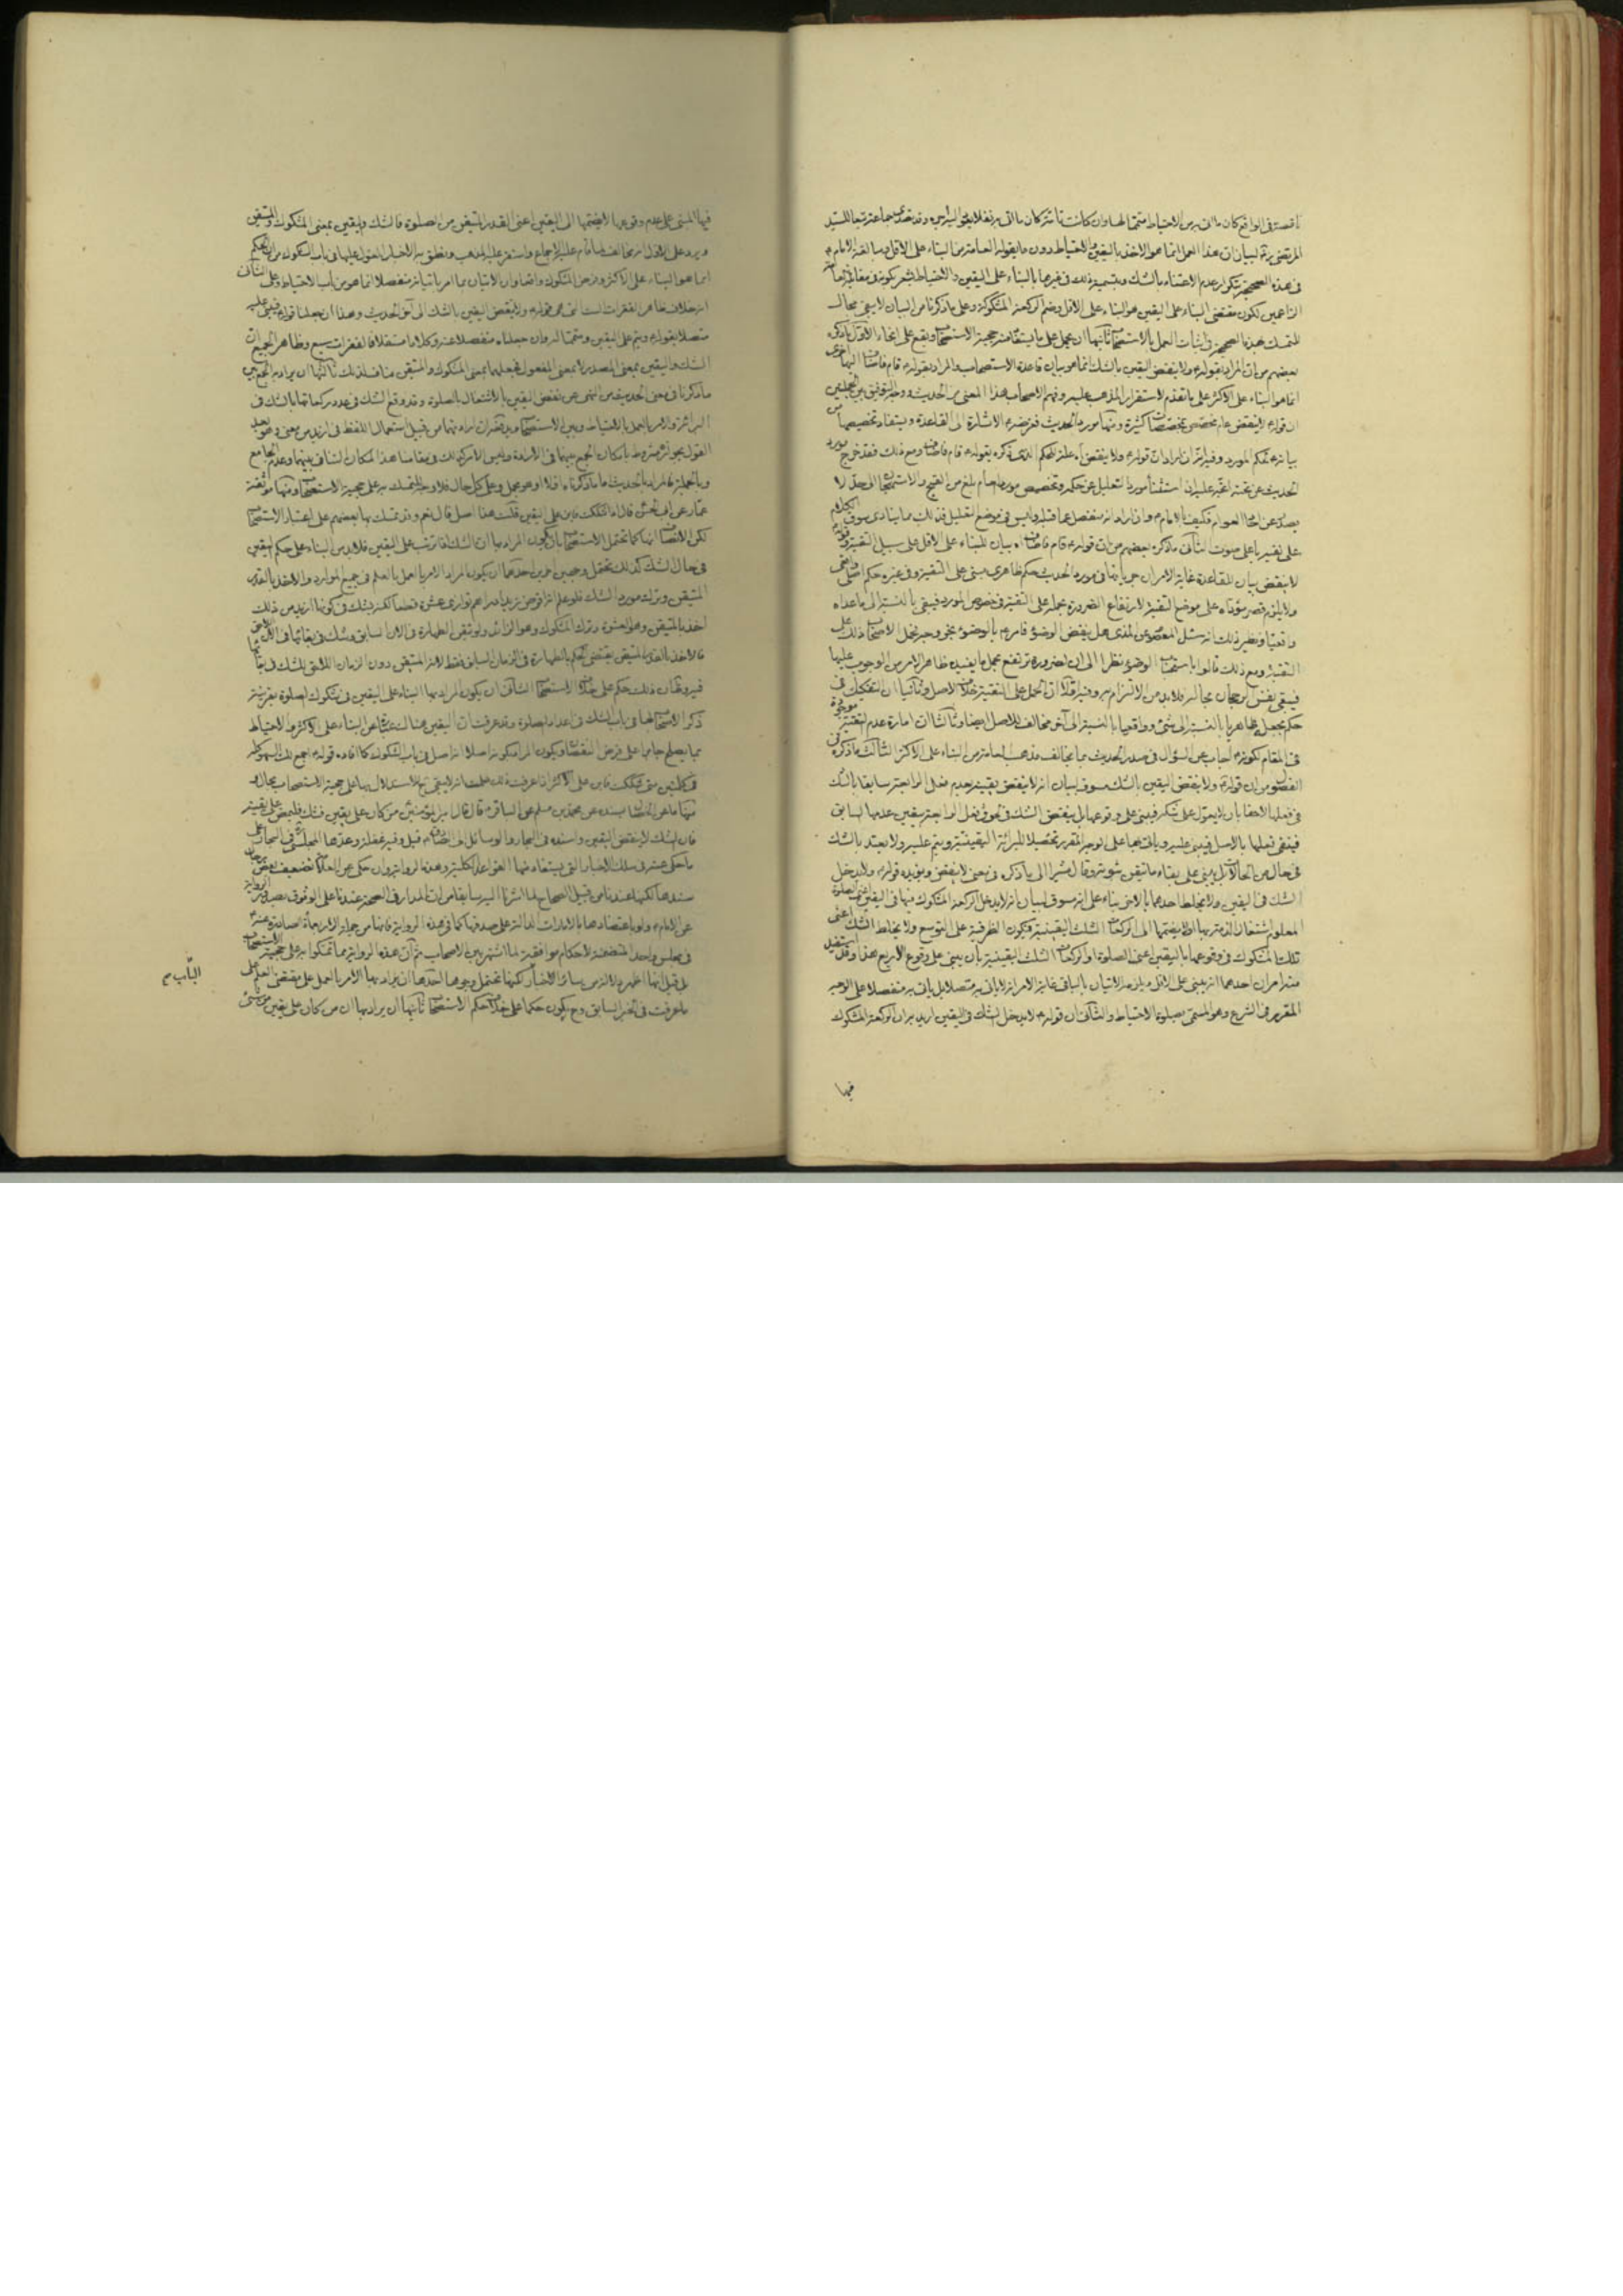 ناقصة فى الواقع كان ما اتى به من الاحتياط متمما لها وان كانت تامة كان ما اتى به نفلا
المرتضى لبيان ان هذا العمل انما هو الاخذ باليقين والاحتياط دون ما يقوله العامة من البناء على الاقل
فى هذه الصحيحة بتكرار عدم الاعتناء بالشك وبتسمية ذلك فى غيرها بالبناء على اليقين والاحتياط يشعر بكونه فى مقابل
الزاعمين لكون مقتضى البناء على اليقين هو البناء على الاقل وضم الركعة المشكوكة وعلى ما ذكرنا من البيان لا يبقى مجال
للتمسك بهذه الصحيحة فى اثبات العمل بالاستصحاب ثانيها ان يحمل على ما يستفاد منه حجية الاستصحاب ويقع على انحاء الاول ما ذكره
بعضهم من ان المراد بقوله ولا ينقض اليقين بالشك انما هو بيان قاعدة الاستصحاب والمراد بقوله قام فاضاف اليها اخرى
انما هو البناء على الاكثر على ما تقدم لاستقرار المذهب عليه وفهم الاصحاب هذا المعنى من الحديث
ان قوله لا ينقض عام مخصص بمخصصات كثيرة ومنها مورد الحديث فغرضه الاشارة الى القاعدة ويستفاد تخصيصها من
بيانه حكم المورد وفيه ان ايراد ان قوله ولا ينقض علة للحكم الذى ذكره بقوله قام فاضاف ومع ذلك فقد خرج مورد
الحديث عن تحته استثناء مورد التعليل عن حكمه وتخصيص مورد العام بلغ من القبح والاستهجان الى حد لا
يصدر عن احاد العوام فكيف بالامام وان اراد انه منفصل عما قبله وليس فى موضع التعليل فذلك مما ينادى سوق الكلام
على تغييره باعلى صوت الثانى ما ذكره بعضهم من ان قوله قام فاضاف بيان للبناء على الاقل على سبيل التقية وقوله
لا ينقض بيان للقاعدة غاية الامر ان جريانها فى مورد الحديث حكم ظاهرى مبنى على التقية وفى غيره حكم اصلى واقعى
ولا يلزم قصر مؤداه على موضع التقية لارتفاع الضرورة بحمله على التقية فى خصوص المورد فيبقى بالنسبة الى ما عداه
واقعيا ونظير ذلك انه سئل المعصوم عن المذى هل ينقض الوضوء فامر بالوضوء حمل الاصحاب ذلك على
التقية ومع ذلك قالوا باستحباب الوضوء نظرا الى ان الضرورة ترتفع بحمل ما يفيده ظاهر الامر من الوجوب عليها
فيبقى نفس الرجحان بحاله فلا بد من الالتزام به وفيه اولا ان الحمل على التقية خلاف الاصل وثانيا ان التفكيك فى
حكم بجعله ظاهريا بالنسبة الى شىء وواقعيا بالنسبة الى آخر مخالف للاصل ايضا وثالثا ان امارة عدم التقية موجودة
فى المقام لكونه اجاب عن السؤال فى صدر الحديث بما يخالف مذهب العامة من البناء على الاكثر الثالث ما ذكره فى
الفصول من ان قوله ولا ينقض اليقين بالشك مسوق لبيان انه لا ينقض يقينه بعدم فعل الرابعة سابقا بالشك
فى فعلها لاحقا بان لا يعول على شكه فيبنى على وقوعها بل ينقض الشك فى وقوع فعل الرابعة بيقين عدمها السابق
فينفى فعلها بالاصل فيبنى عليه وياتى بها على الوجه المقرر تحصيلا للبرائة اليقينية ويتم عليه ولا يعتد بالشك
فى حال من الحالات بل يبنى على بقاء ما تيقن ثبوته وقال مشيرا الى ما ذكره فى معنى لا ينقض ويؤيده قوله ولا يدخل
الشك فى اليقين ولا يخلط احدهما بالاخر بناء على انه مسوق لبيان انه لا يدخل الركعة المشكوك فيها فى اليقين اعنى الصلوة
المعلوم اشتغال الذمة بها او لا يضمها الى الركعات الثلث اليقينية فتكون الظرفية على التوسع ولا يخلط الشك اعنى
تلك المشكوك فى وقوعها باليقين اعنى الصلوة او الركعات الثلث اليقينية بان يبنى على وقوع الاربع هذا وقد يستفيد
منه امران احدهما انه يبنى على الاقل ويلزمه الاتيان بالباقى غاية الامر انه لا ياتى به متصلا بل ياتى به منفصلا على الوجه
المقرر فى الشرع وهو المسمى بصلوة الاحتياط والثانى ان قوله لا يدخل الشك فى اليقين اريد به ان الركعة المشكوك
فيها
فيها المبنى على عدم وقوعها لا يضمها الى اليقين اعنى القدر المتيقن من الصلوة فالشك واليقين بمعنى المشكوك والمتيقن
ويرد على الاول انه مخالف لما قام عليه الاجماع واستقر عليه المذهب ونطق به الاخبار المعول عليها فى باب الشكوك من ان الحكم
انما هو البناء على الاكثر وفرض المشكوك واقعا وان الاتيان بما امر باتيانه منفصلا انما هو من باب الاحتياط وعلى الثانى
انه خلاف ظاهر الفقرات الست التى هى قوله ولا ينقض اليقين بالشك الى آخر الحديث وهذا ان جعلنا قوله فيبنى عليه
متصلا بقوله ويتم على اليقين ومتمما له وان جعلناه منفصلا عنه وكلاما مستقلا فالفقرات سبع وظاهر الجميع ان
الشك واليقين بمعنى المصدر لا بمعنى المفعول فجعلهما بمعنى المشكوك والمتيقن مناف لذلك ثالثها ان يراد به الجمع بين
ما ذكرنا فى معنى الحديث من النهى عن نقض اليقين بالاشتغال بالصلوة وقد وقع الشك فى عدد ركعاتها بالشك فى
البرائة والامر بالعمل بالاحتياط وبين الاستصحاب ويرد عليه ان ارادتهما من قبيل استعمال اللفظ فى ازيد من معنى وهو بعد
القول بجوازه مشروط بامكان الجمع بينهما فى الارادة وليس الامر كذلك فى مقامنا هذا لمكان التنافى بينهما وعدم الجامع
وبالجملة فالمراد بالحديث اما ما ذكرناه اولا او هو مجمل وعلى كل حال فلا وجه للتمسك به على حجية الاستصحاب ومنها موثقة
عمار عن ابى الحسن قال اذا شككت فابن على اليقين قلت هذا اصل قال نعم وقد تمسك بها بعضهم على اعتبار الاستصحاب
لكن الانصاف انها كما تحتمل الاستصحاب بان يكون المراد بها ان الشك اذا ترتب على اليقين فلا بد من البناء على حكم اليقين
فى حال الشك كذلك تحتمل وجهين آخرين احدهما ان يكون المراد الامر بالعمل بالعلم فى جميع الموارد والاخذ بالقدر
المتيقن وترك مورد الشك فلو علم انه اقرض زيدا دراهم توازى عشرة قطعا لكنه يشك فى كونها ازيد من ذلك
اخذ بالمتيقن وهو العشرة وترك المشكوك وهو الزائد ولو تيقن الطهارة فى الان السابق وشك فى بقائها فى اللاحق
فالاخذ بالقدر المتيقن يقتضى الحكم بالطهارة فى الزمان السابق فقط لانه المتيقن دون الزمان اللاحق للشك فى بقائها
فيه وظاهر ان ذلك حكم على خلاف الاستصحاب الثانى ان يكون المراد بها البناء على اليقين فى شكوك الصلوة بقرينة
ذكر الاصحاب لها فى باب الشك فى اعداد الصلوة وقد عرفت ان اليقين هناك عبارة عن البناء على الاكثر والاحتياط
بما يصلح جابرا على فرض النقصان ويكون المراد بكونه اصلا انه اصل فى باب الشكوك كما افاده قوله اجمع لك السهو كله
فى كلمتين متى شككت فابن على الاكثر اذا عرفت ذلك علمت انه لا يبقى مجال للاستدلال بها على حجية الاستصحاب بحال
منها ما عن الخصال بسنده عن محمد بن مسلم عن الباقر قال قال امير المؤمنين من كان على يقين فشك فليمض على يقينه
فان الشك لا ينقض اليقين واسنده فى البحار والوسائل الى الصادق قيل وفيه غفلة وعدها المجلسى فى البحار على
ما حكى عنه فى سلك الاخبار التى يستفاد منها القواعد الكلية وهذه الرواية وان حكى عن العلامة تضعيف بعض رجال
سندها لكنها عندنا من قبيل الصحاح لما اشرنا اليه سابقا من ان المدار فى الصحة عندنا على الوثوق بصدور الرواية
عن الامام ولو باعتضادها بالامارات الدالة على صدقها كما فى هذه الرواية فانها من جملة الاربعمأة الصادرة عنه
فى مجلس واحد المتضمنة لاحكام موافقة لما اشتهر بين الاصحاب ثم ان هذه الرواية مما تمسكوا به على حجية الاستصحاب
بل قيل انها اظهر دلالة من سائر الاخبار لكنها تحتمل وجوها احدها ان يراد بها الامر بالعمل على مقتضى العلم على
ما عرفت فى الخبر السابق وح يكون حكما على خلاف حكم الاستصحاب ثانيها ان يراد بها ان من كان على يقين من شىء